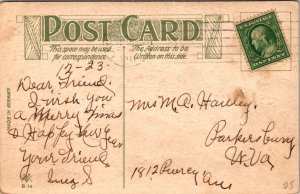 POST CARD
This space may be used
for correspondence
The Address to be
Written on this side.
12-23.
Dear Friend.
I wish you
a Merry Xmas
& Happy New
Year
Your Friend
Inez S
Mrs M A Hawley
Parkersburg
W Va
1812 Ave
MADE IN GERMANY
B.14
ONE CENT
25